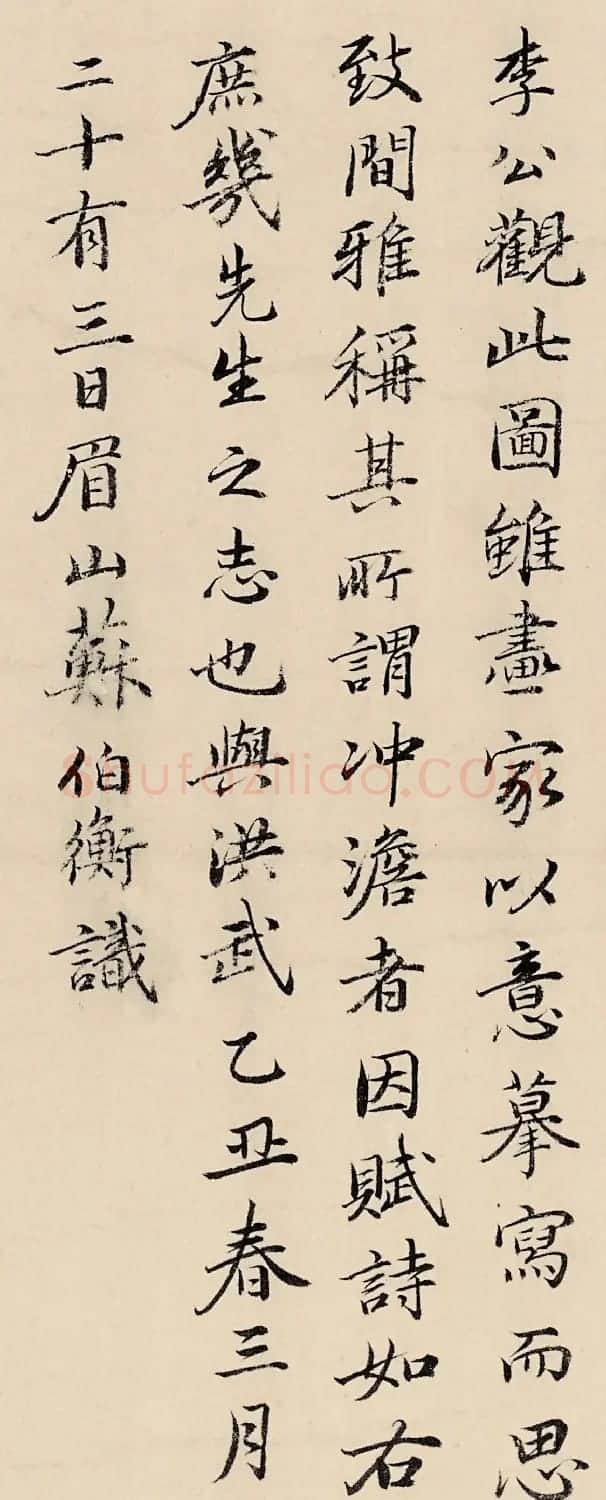 李公觀此圖雖畫家以意摹寫而思
致間雅稱其所謂冲澹者因賦詩如右
庶幾先生之志也與洪武乙丑春三月
二十有三日眉山蘇伯衡識
Shufaziliao.COM